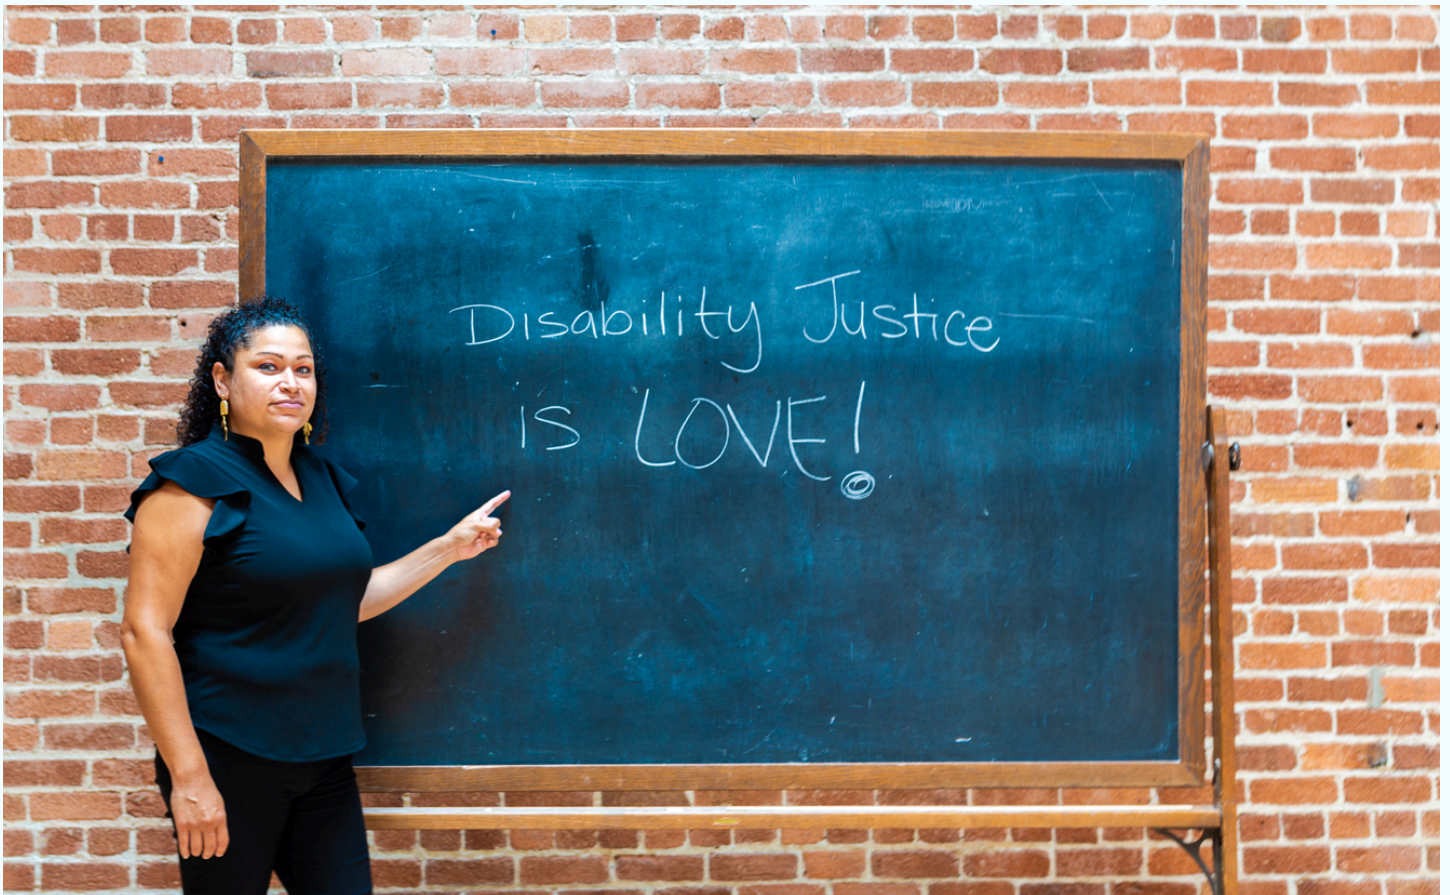 Disability Justice
is LOVE!